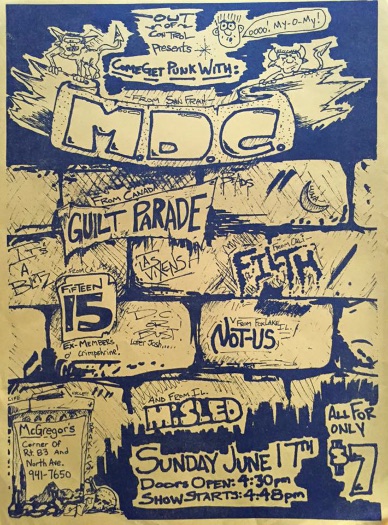 OUT
OF
CONTROL
Presents
OOOO! My-O-My!
COME GET PUNK WITH:
FROM SAN FRAN
M.D.C.
FROM CANADA
GUILT PARADE
FROM CALI
FILTH
FIFTEEN
15
EX-MEMBERS
of Crimpshrine!
FROM FOX LAKE, IL.
NOT-US
AND FROM IL.
MISLED
McGregor's
Corner of
Rt. 83 And
North Ave.
941-7650
SUNDAY JUNE 17TH
DOORS OPEN: 4:30pm
SHOW STARTS: 4:48pm
ALL FOR
ONLY
$7